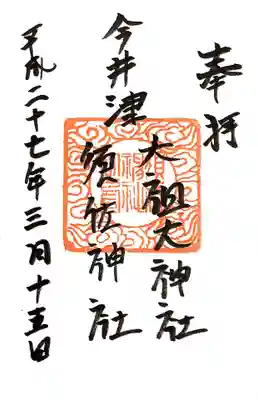 奉拝
大祖大神社
今井津
須佐神社
平成二十七年三月十五日